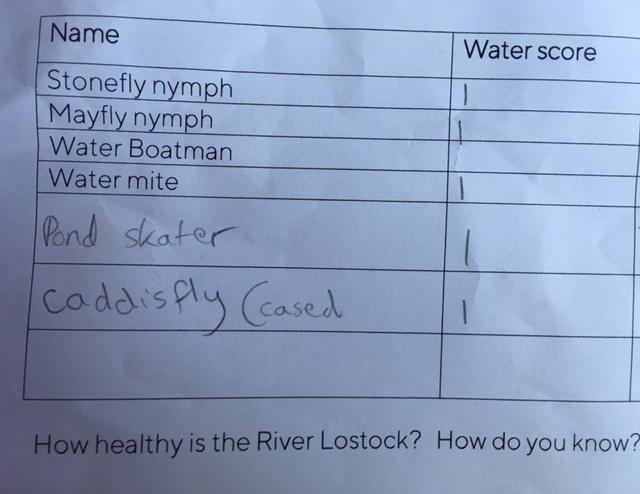 Name Water score
Stonefly nymph 1
Mayfly nymph 1
Water Boatman
Water mite 1
Pond skater 1
Caddisfly (cased 1
How healthy is the River Lostock? How do you know?